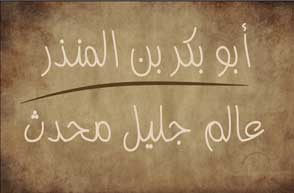 أبو بكر بن المنذر
عالم جليل محدث